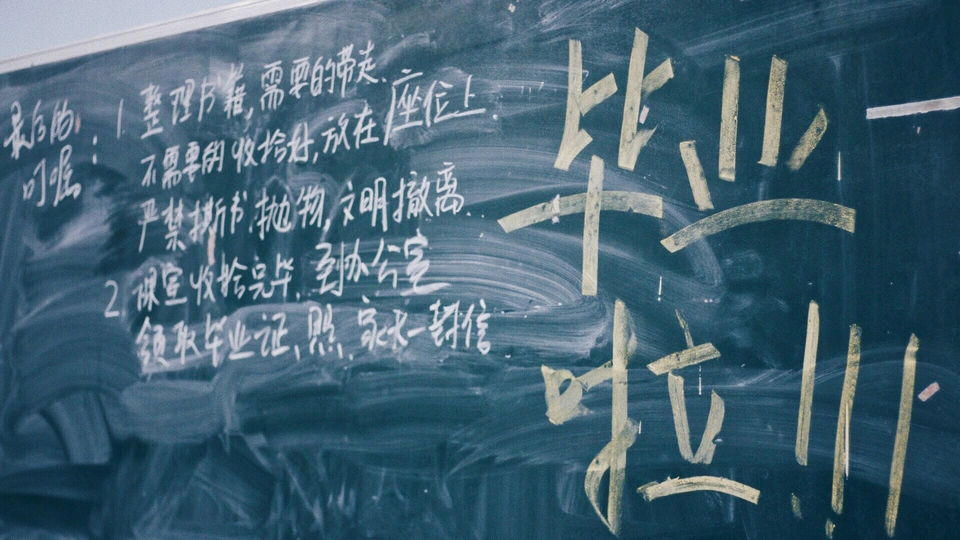 最后的叮嘱：
1 整理书籍,需要的带走.
不需要的收拾好,放在座位上.
严禁撕书.抛物,文明撤离.
2 课室收拾完毕,到办公室
领取毕业证、照、家长一封信
毕业
啦!!!